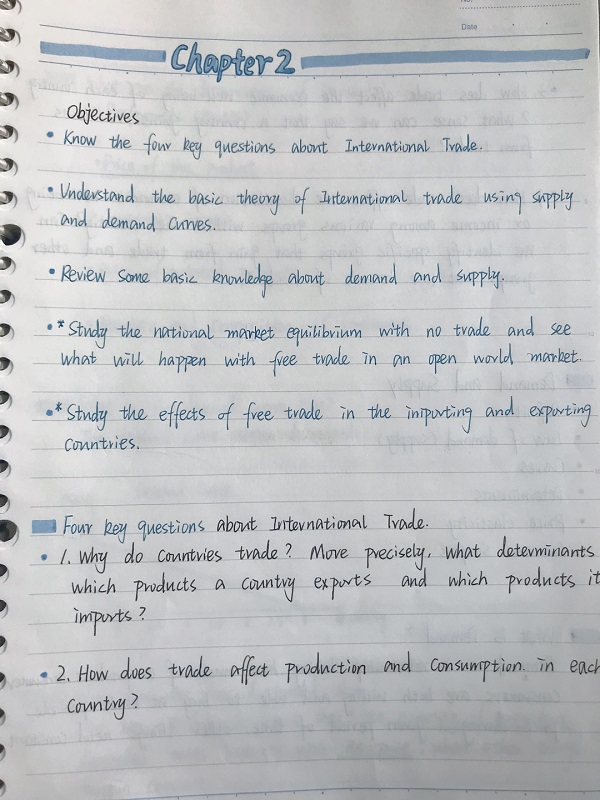 No.
Date
Chapter 2
Objectives
• Know the four key questions about International Trade.
• Understand the basic theory of International trade using supply
and demand curves.
• Review some basic knowledge about demand and supply.
•* Study the national market equilibrium with no trade and see
what will happen with free trade in an open world market.
•* Study the effects of free trade in the importing and exporting
countries.
Four key questions about International Trade.
• 1. Why do countries trade? More precisely, what determinants
which products a country exports and which products it
imports?
• 2. How does trade affect production and consumption in each
country?